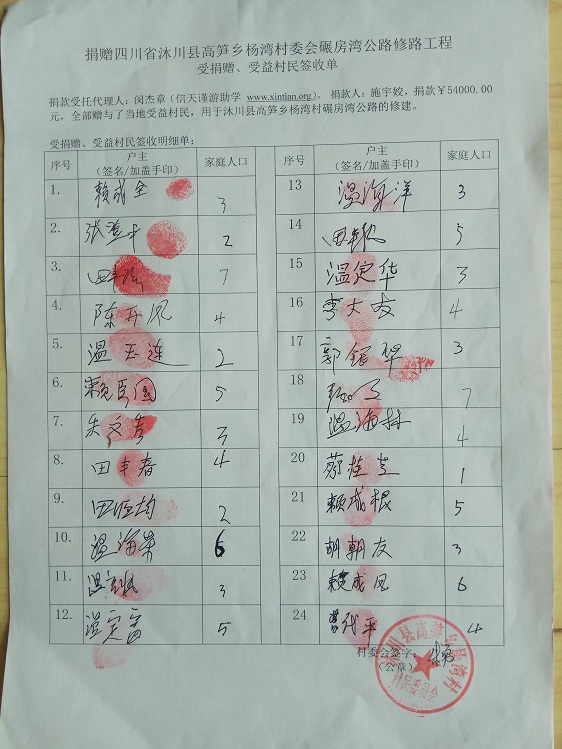 捐赠四川省沐川县高笋乡杨湾村委会碾房湾公路修路工程
受捐赠、受益村民签收单
捐款受托代理人：闵杰章（信天谨游助学 www.xintian.org)，捐款人：施宇姣，捐款￥54000.00
元，全部赠与了当地受益村民，用于沐川县高笋乡杨湾村碾房湾公路的修建。
受捐赠、受益村民签收明细单：
序号 户主（签名/加盖手印） 家庭人口
1. 赖成全 3
2. 2
3. 7
4. 陈开凤 4
5. 温玉连 2
6. 赖臣国 5
7. 朱文芳 3
8. 田丰春 4
9. 2
10. 温海荣 6
11. 3
12. 温定富 5
序号 户主（签名/加盖手印） 家庭人口
13 温海洋 3
14 5
15 温定华 3
16 李大友 4
17 郭银翠 3
18 7
19 温海林 4
20 1
21 赖成根 5
22 胡朝友 3
23 赖成凤 6
24 4
村委会签字：
（公章）
沐川县高笋乡杨湾村
村民委员会